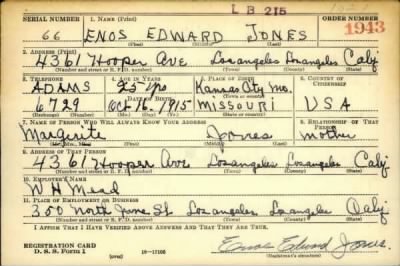 L B 215
SERIAL NUMBER 1. NAME (Print) ORDER NUMBER
66 ENOS EDWARD JONES 1943
(First) (Middle) (Last)
2. ADDRESS (Print)
4361 Hooper Ave Los angeles Los angeles Calif
(Number and street or R. F. D. number) (Town) (County) (State)
3. TELEPHONE 4. AGE IN YEARS 5. PLACE OF BIRTH 6. COUNTRY OF CITIZENSHIP
ADAMS 25 yrs Kansas City Mo.
DATE OF BIRTH
6729 Oct 16, 1915 MISSOURI USA
7. NAME OF PERSON WHO WILL ALWAYS KNOW YOUR ADDRESS 8. RELATIONSHIP OF THAT PERSON
Margurite Jones mother
9. ADDRESS OF THAT PERSON
4361 Hooper Ave Los angeles Los angeles Calif
(Number and street or R. F. D. number) (Town) (County) (State)
10. EMPLOYER'S NAME
W H Mead
11. PLACE OF EMPLOYMENT OR BUSINESS
350 North St. Los angeles Los angeles Calif
(Number and street or R. F. D. number) (Town) (County) (State)
I AFFIRM THAT I HAVE VERIFIED ABOVE ANSWERS AND THAT THEY ARE TRUE.
REGISTRATION CARD
D. S. S. Form 1 (over) 16—17105 Enos Edward Jones
(Registrant's signature)